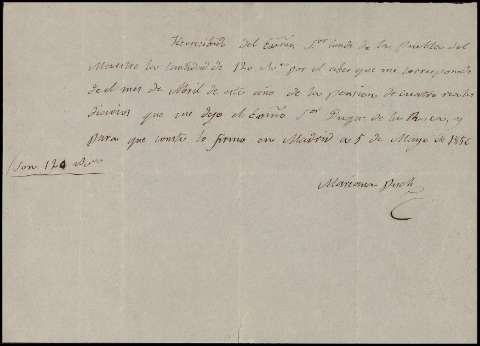 He recibido del Exmo Sor Conde de la Puebla del
Maestre la cantidad de 120 rs. vn por el aber que me corresponde
de el mes de Abril de este año de la pension de cuatro reales
diarios que me dejo el Exmo Sor Duque de la Roca, y
para que conste lo firmo en Madrid a 5 de Mayo de 1856
Son 120 rs. vn
Mariana